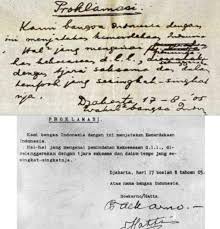 Proklamasi.
Kami bangsa Indonesia dengan
ini menjatakan kemerdekaan
Hal
kekoeasaan d.l.l.,
dengan tjara saksama dan
tempoh jang sesingkat-singkat-
nja.
Djakarta 17-8-'05
PROKLAMASI
Kami bangsa Indonesia dengan ini menjatakan Kemerdekaan
Indonesia.
Hal-hal jang mengenai pemindahan kekoeasaan d.l.l., di-
selenggarakan dengan tjara saksama dan dalam tempo jang se-
singkat-singkatnja.
Djakarta, hari 17 boelan 8 tahoen 05.
Atas nama bangsa Indonesia.
Soekarno/Hatta.
Hatta